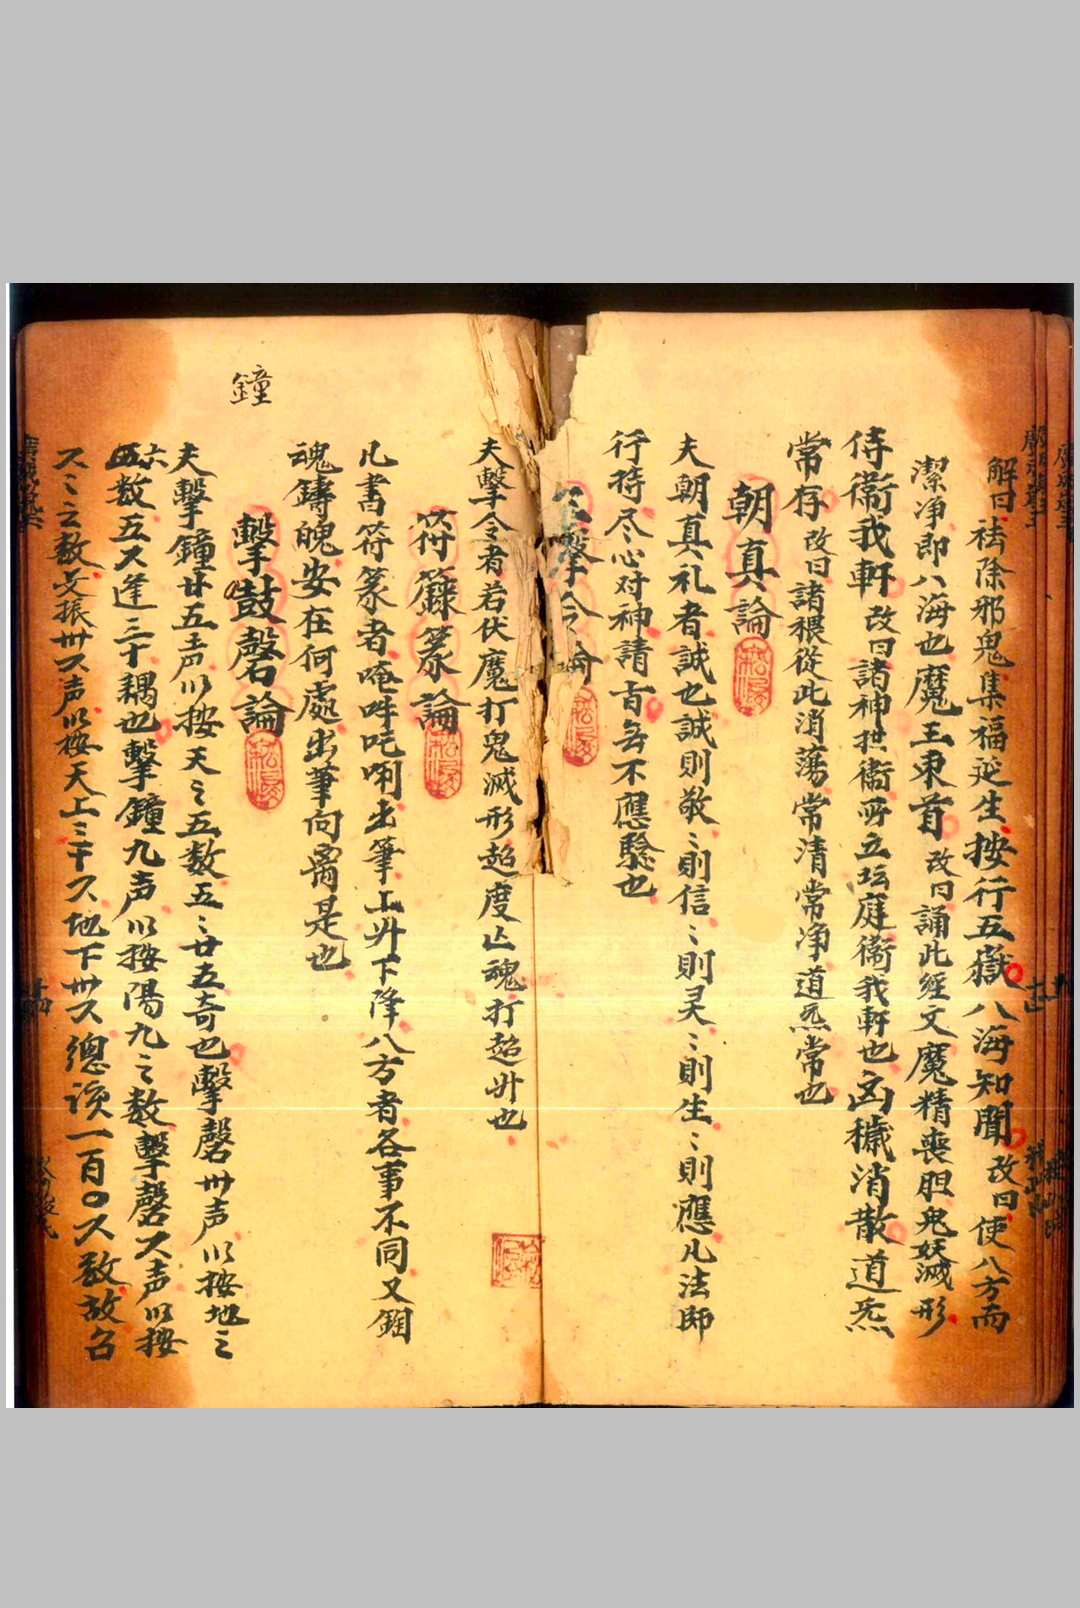 解曰祛除邪鬼集福延生按行五嶽八海知聞改曰使八方而
潔净即八海也魔王束首改曰誦此經文魔精喪胆鬼妖滅形
侍衞我軒改曰諸神拱衞所立坛庭衞我軒也凶穢消散道炁
常存改曰諸穢從此消蕩常清常净道炁常也
朝真論
夫朝真礼者誠也誠則敬〻則信〻則灵〻則生〻則應凡法師
行持尽心对神請旨無不應驗也
擊令論
夫擊令者若伏魔打鬼滅形超度亾魂打超升也
符籙篆論
凡書符篆者唵吽吒唎出筆上升下降八方者各事不同又鋼
魂鑄魄安在何處出筆向离是也
擊鼓磬論
鐘
夫擊鐘廿五声以按天之五数五〻廿五奇也擊磬卅声以按地之
六数五六逢三十耦也擊鐘九声以按陽九之数擊磬六声以按
六之数交振卅六声以按天上三十六地下卅六總該一百〇六数故名